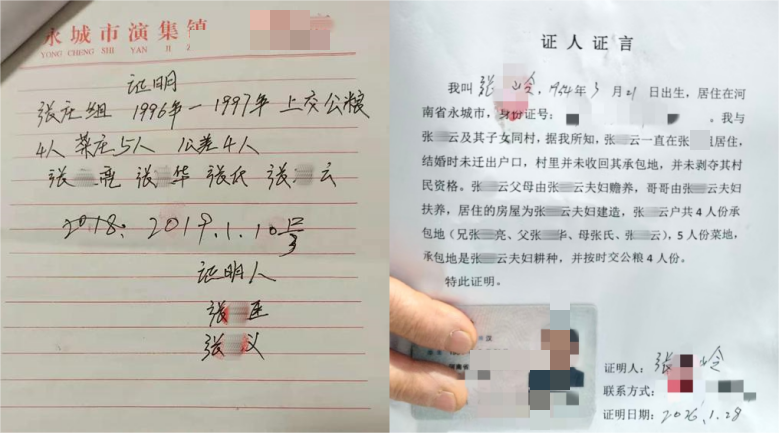 永城市演集镇
YONG CHENG SHI YAN
证明
张庄组 1996年—1997年 上交公粮
4人 菜庄5人 公差4人
张 亮 张 华 张氏 张 云
2018: 2019.1.10日
证明人
张
张 义
证人证言
我叫张 岭,1954年3月21日出生,居住在河
南省永城市,身份证号:
我与
张 云及其子女同村,据我所知,张 云一直在张 组居住,
结婚时未迁出户口,村里并未收回其承包地,并未剥夺其村
民资格。张 云父母由张 云夫妇赡养,哥哥由张 云夫妇
扶养,居住的房屋为张 云夫妇建造,张 云户共4人份承
包地(兄张 亮、父张 华、母张氏、张 云),5人菜地,
承包地是张 云夫妇耕种,并按时交公粮4人份。
特此证明。
证明人:张 岭
联系方式:
证明日期:2026.1.28